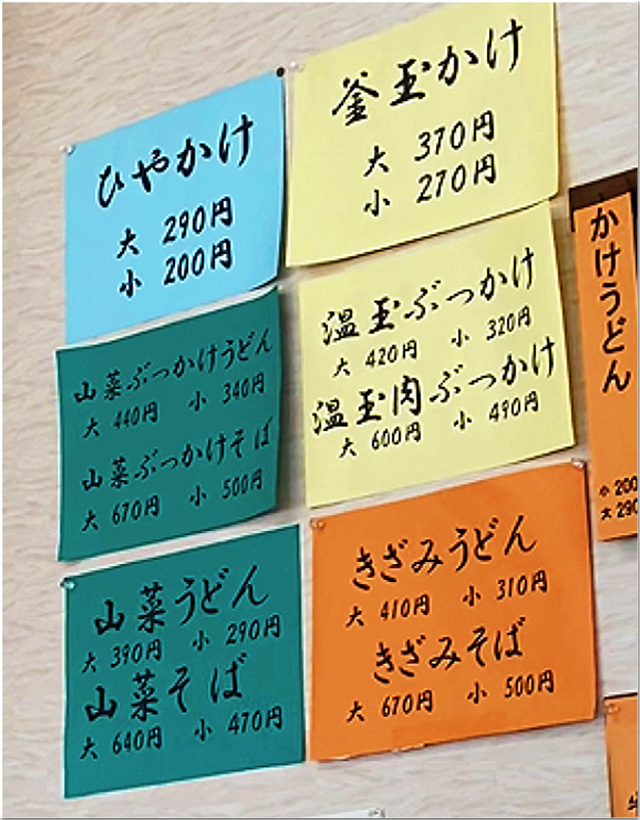 ひやかけ
大 290円
小 200円
釜玉かけ
大 370円
小 270円
山菜ぶっかけうどん
大 440円 小 340円
山菜ぶっかけそば
大 670円 小 500円
温玉ぶっかけ
大 420円 小 320円
温玉肉ぶっかけ
大 600円 小 490円
かけうどん
小 200
大 290
山菜うどん
大 390円 小 290円
山菜そば
大 640円 小 470円
きざみうどん
大 410円 小 310円
きざみそば
大 670円 小 500円